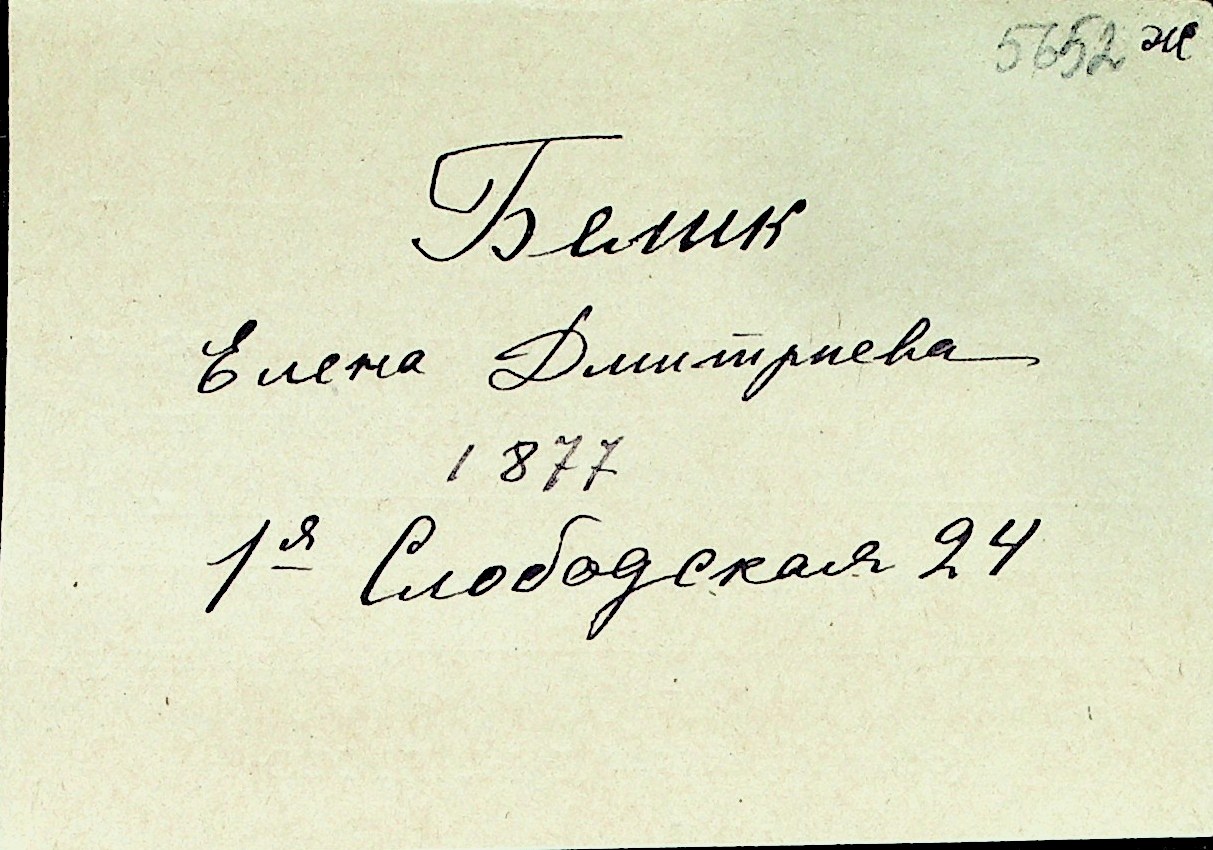 5652 ж
Белик
Елена Дмитриева
1877
1я Слободская 24